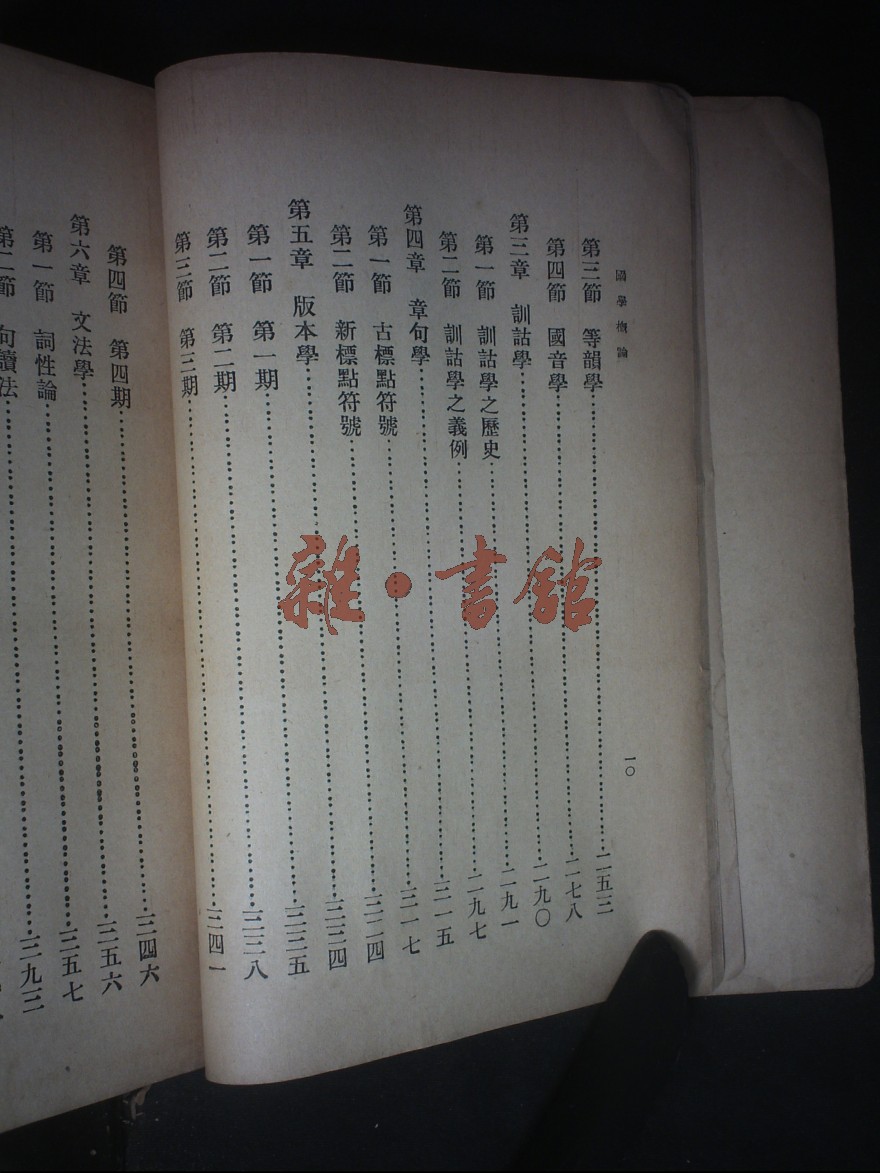 國學概論 一〇
第三節 等韻學……二五三
第四節 國音學……二七八
第三章 訓詁學……二九〇
第一節 訓詁學之歷史……二九一
第二節 訓詁學之義例……二九七
第四章 章句學……三一五
第一節 古標點符號……三一七
第二節 新標點符號……三二四
第五章 版本學……三三四
第一節 第一期……三三五
第二節 第二期……三三八
第三節 第三期……三四一
第四節 第四期……三四六
第六章 文法學……三五六
第一節 詞性論……三五七
第二節 句讀法……三九三
雜·書館